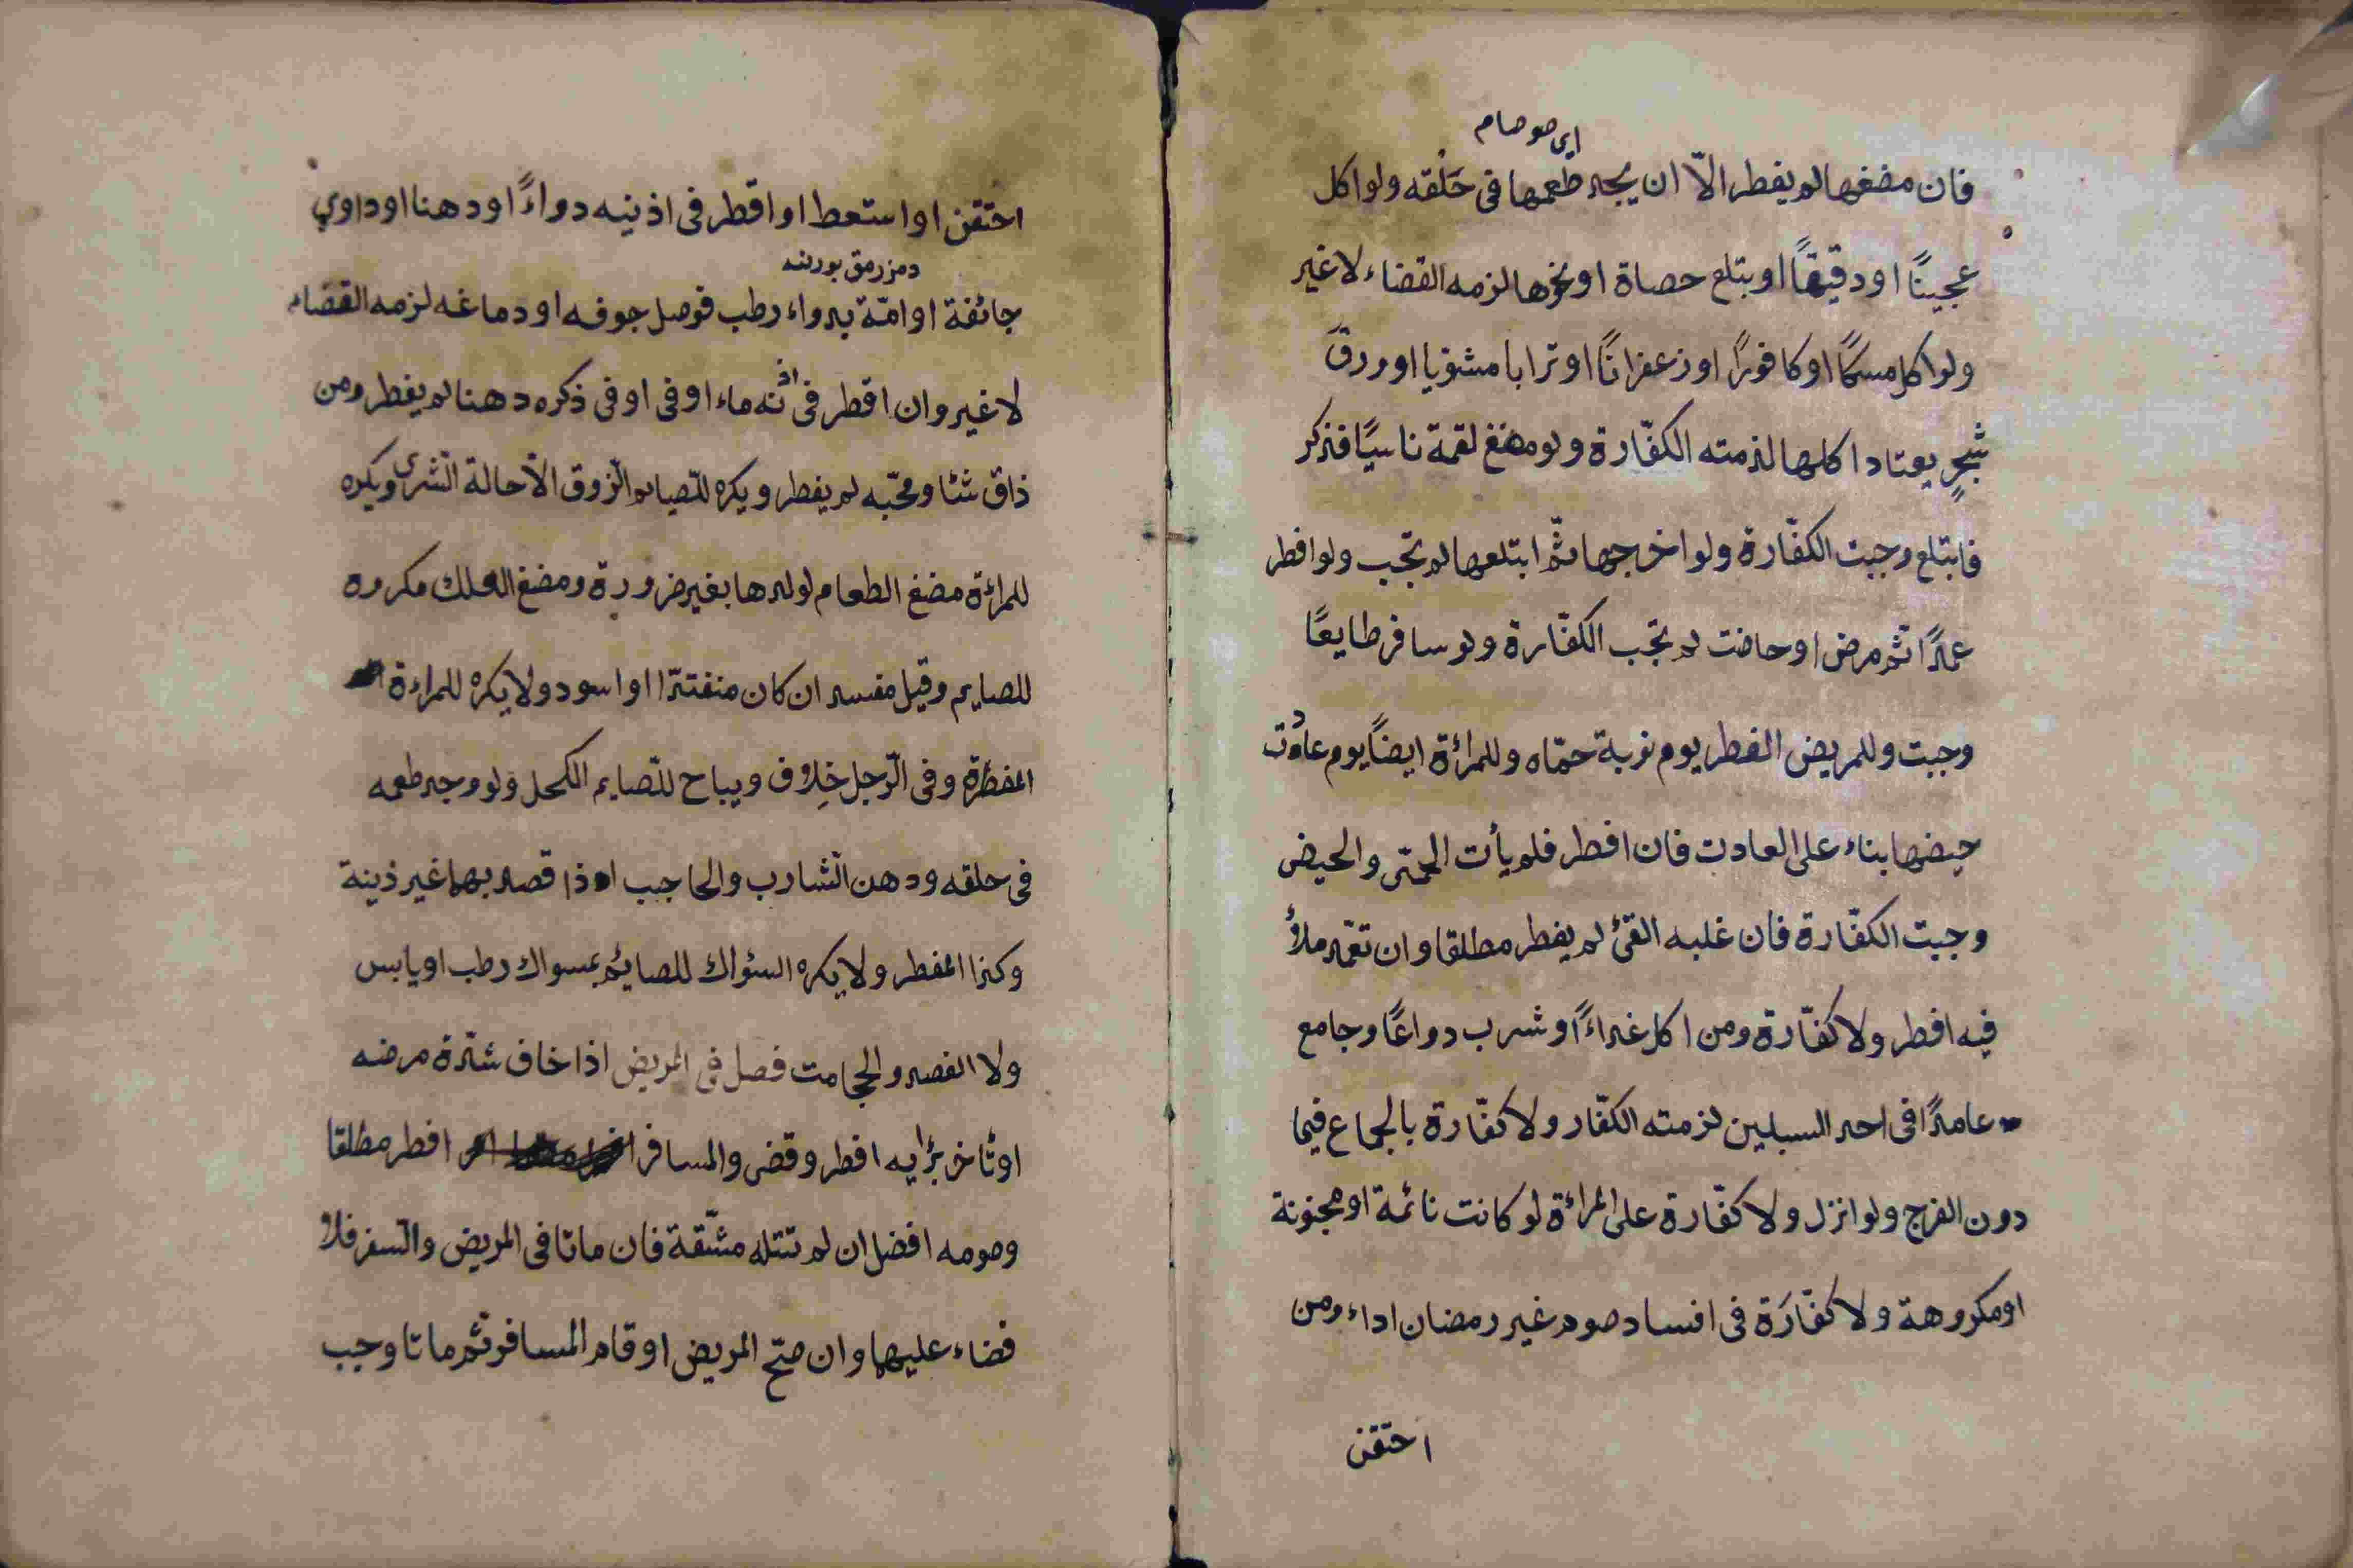 اي صو صام
فان مضغها لم يفطر الّا ان يجد طعمها فى حَلْقه ولو اكل
عجينًا او دقيقًا او بتلع حصاة او نحوها لزمه القضاء لا غير
ولو اكل مسكًا او كافورًا او زعفرانًا او ترابا مشويا او ورق
شجرٍ يعتاد اكلها لزمته الكفّارة ولو مضغ لقمة ناسيًا فذكر
فابتلع وجبت الكفّارة ولو اخرجها ثمّ ابتلعها لم تجب ولو افطر
عمدًا ثمّ مرض او حاضت لم تجب الكفّارة ولو سافر طايعًا
وجبت وللمريض الفطر يوم نوبة حمّاه وللمراءة ايضًا يوم عادت
حيضها بناء على العادت فان افطر فلم يأت الحمّى والحيض
وجبت الكفّارة فان غلبه القئ لم يفطر مطلقا وان تعمّد ملأ
فيه افطر ولا كفّارة ومن اكل غداءً او شرب دواءً وجامع
عامدًا فى احد السبلين لزمته الكفّار ولا كفّارة بالجماع فيما
دون الفرج ولو انزل ولا كفّارة على المراءة لو كانت نائمة او مجنونة
او مكروهة ولا كفّارَة فى افساد صوم غير رمضان اداء ومن
احتقن
احتقن او استعط او اقطر فى اذنيه دواءً او دهنا او داوي
جائفة او امّة بدواء رطب فوصل جوفه او دماغه لزمه القضاء
لا غير وان اقطر فى اذنه ماء او فى او فى ذكره دهنا لم يفطر ومن
ذاق شئا ومجّه لم يفطر ويكره للصّيام الزّوق الّا حالة الشّرى ويكره
للمراءة مضغ الطعام لولدها بغير ضرورة ومضغ العلك مكروه
للصايم وقيل مفسد ان كان منفتتا او اسود ولا يكره للمراءة
المفطرة وفى الرّجل خِلاف ويباح للصّايم الكحل ولو وجد طعمه
فى حلقه ودهن الشّارب والحاجب اذا قصد بهما غير ذينة
وكذا المفطر ولا يكره السئواك للصايم بمسواك رطب او يابس
ولا الفصد والحجامت فصل فى المريض اذا خاف شدّة مرضه
او تأخر برايه افطر وقضى والمسافر افطر مطلقا
وصومه افضل ان لم تنله مشّقة فان ماتا فى المريض والسّفر فلا
قضاء عليهما وان صحّ المريض او قام المسافر ثمّ ماتا وجب